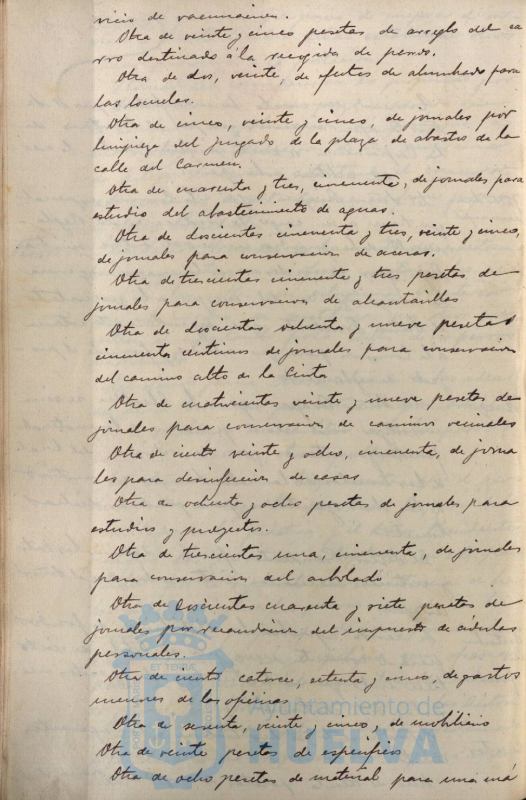 vicio de vacunaciones.
Otra de veinte y cinco pesetas de arreglo del ca
rro destinado á la recogida de perros.
Otra de dos, veinte, de efectos de alumbrado para
las Escuelas.
Otra de cinco, veinte y cinco, de jornales por
limpieza del juzgado de la plaza de abastos de la
calle del Carmen.
Otra de cuarenta y tres, cincuenta, de jornales para
estudio del abastecimiento de aguas.
Otra de doscientas cincuenta y tres, veinte y cinco,
de jornales para conservacion de aceras.
Otra de trescientas cincuenta y tres pesetas de
jornales para conservacion de alcantarillas
Otra de doscientas ochenta y nueve pesetas
cincuenta céntimos de jornales para conservacion
del camino alto de la Cinta
Otra de cuatrocientas veinte y nueve pesetas de
jornales para conservacion de caminos vecinales
Otra de ciento veinte y ocho, cincuenta, de jorna
les para desinfeccion de casas
Otra de ochenta y ocho pesetas de jornales para
estudios y proyectos.
Otra de trescientas una, cincuenta, de jornales
para conservacion del arbolado
Otra de doscientas cuarenta y siete pesetas de
jornales por recaudacion del impuesto de cédulas
personales.
Otra de ciento catorce, setenta y cinco, de gastos
menores de las oficinas
Otra de sesenta, veinte y cinco, de mobiliario
Otra de veinte pesetas de específicos
Otra de ocho pesetas de material para una má
Ayuntamiento de
HUELVA